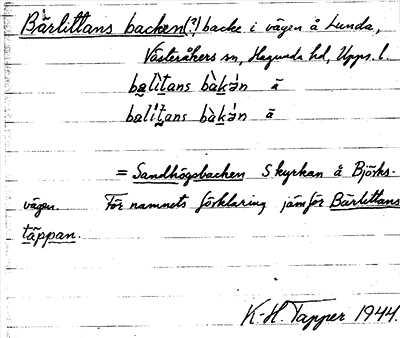 Bärlittans backen(?) backe i vägen å Lunda,
Västeråkers sn, Hagunda hd, Upps. l.
balìtans bàkən ã
balítans bàkən ã
= Sandhögsbacken S kyrkan å Björks-
vägen. För namnets förklaring jämför Bärlittans
täppan.
K-H. Tapper 1944.